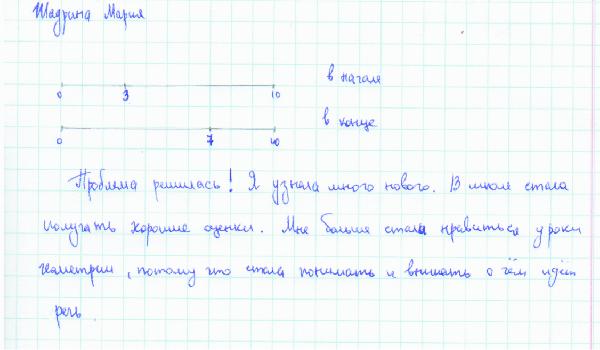 Шадрина Мария
0 3 10 в начале
0 7 10 в конце
Проблема решилась! Я узнала много нового. В школе стала
получать хорошие оценки. Мне больше стали нравиться уроки
геометрии, потому что стала понимать и вникать о чём идёт
речь.